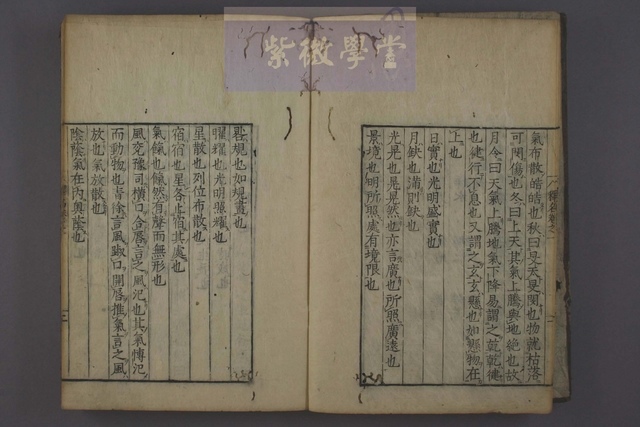 紫微學堂
氣布散皓皓也秋曰旻天旻閔也物就枯落
可閔傷也冬曰上天其氣上騰與地絶也故
月令曰天氣上騰地氣下降易謂之乾乾健
也健行不息也又謂之玄玄懸也如懸物在
上也
日實也光明盛實也
月缺也滿則缺也
光晃也晃晃然也亦言廣也所照廣遠也
景境也明所照處有境限也
晷規也如規畫也
曜耀也光明照耀也
星散也列位布散也
宿宿也星各止宿其處也
氣餼也餼然有聲而無形也
風兗豫司橫口合脣言之風氾也其氣博氾
而動物也青徐言風踧口開脣推氣言之風
放也氣放散也
陰蔭也氣在內奧蔭也